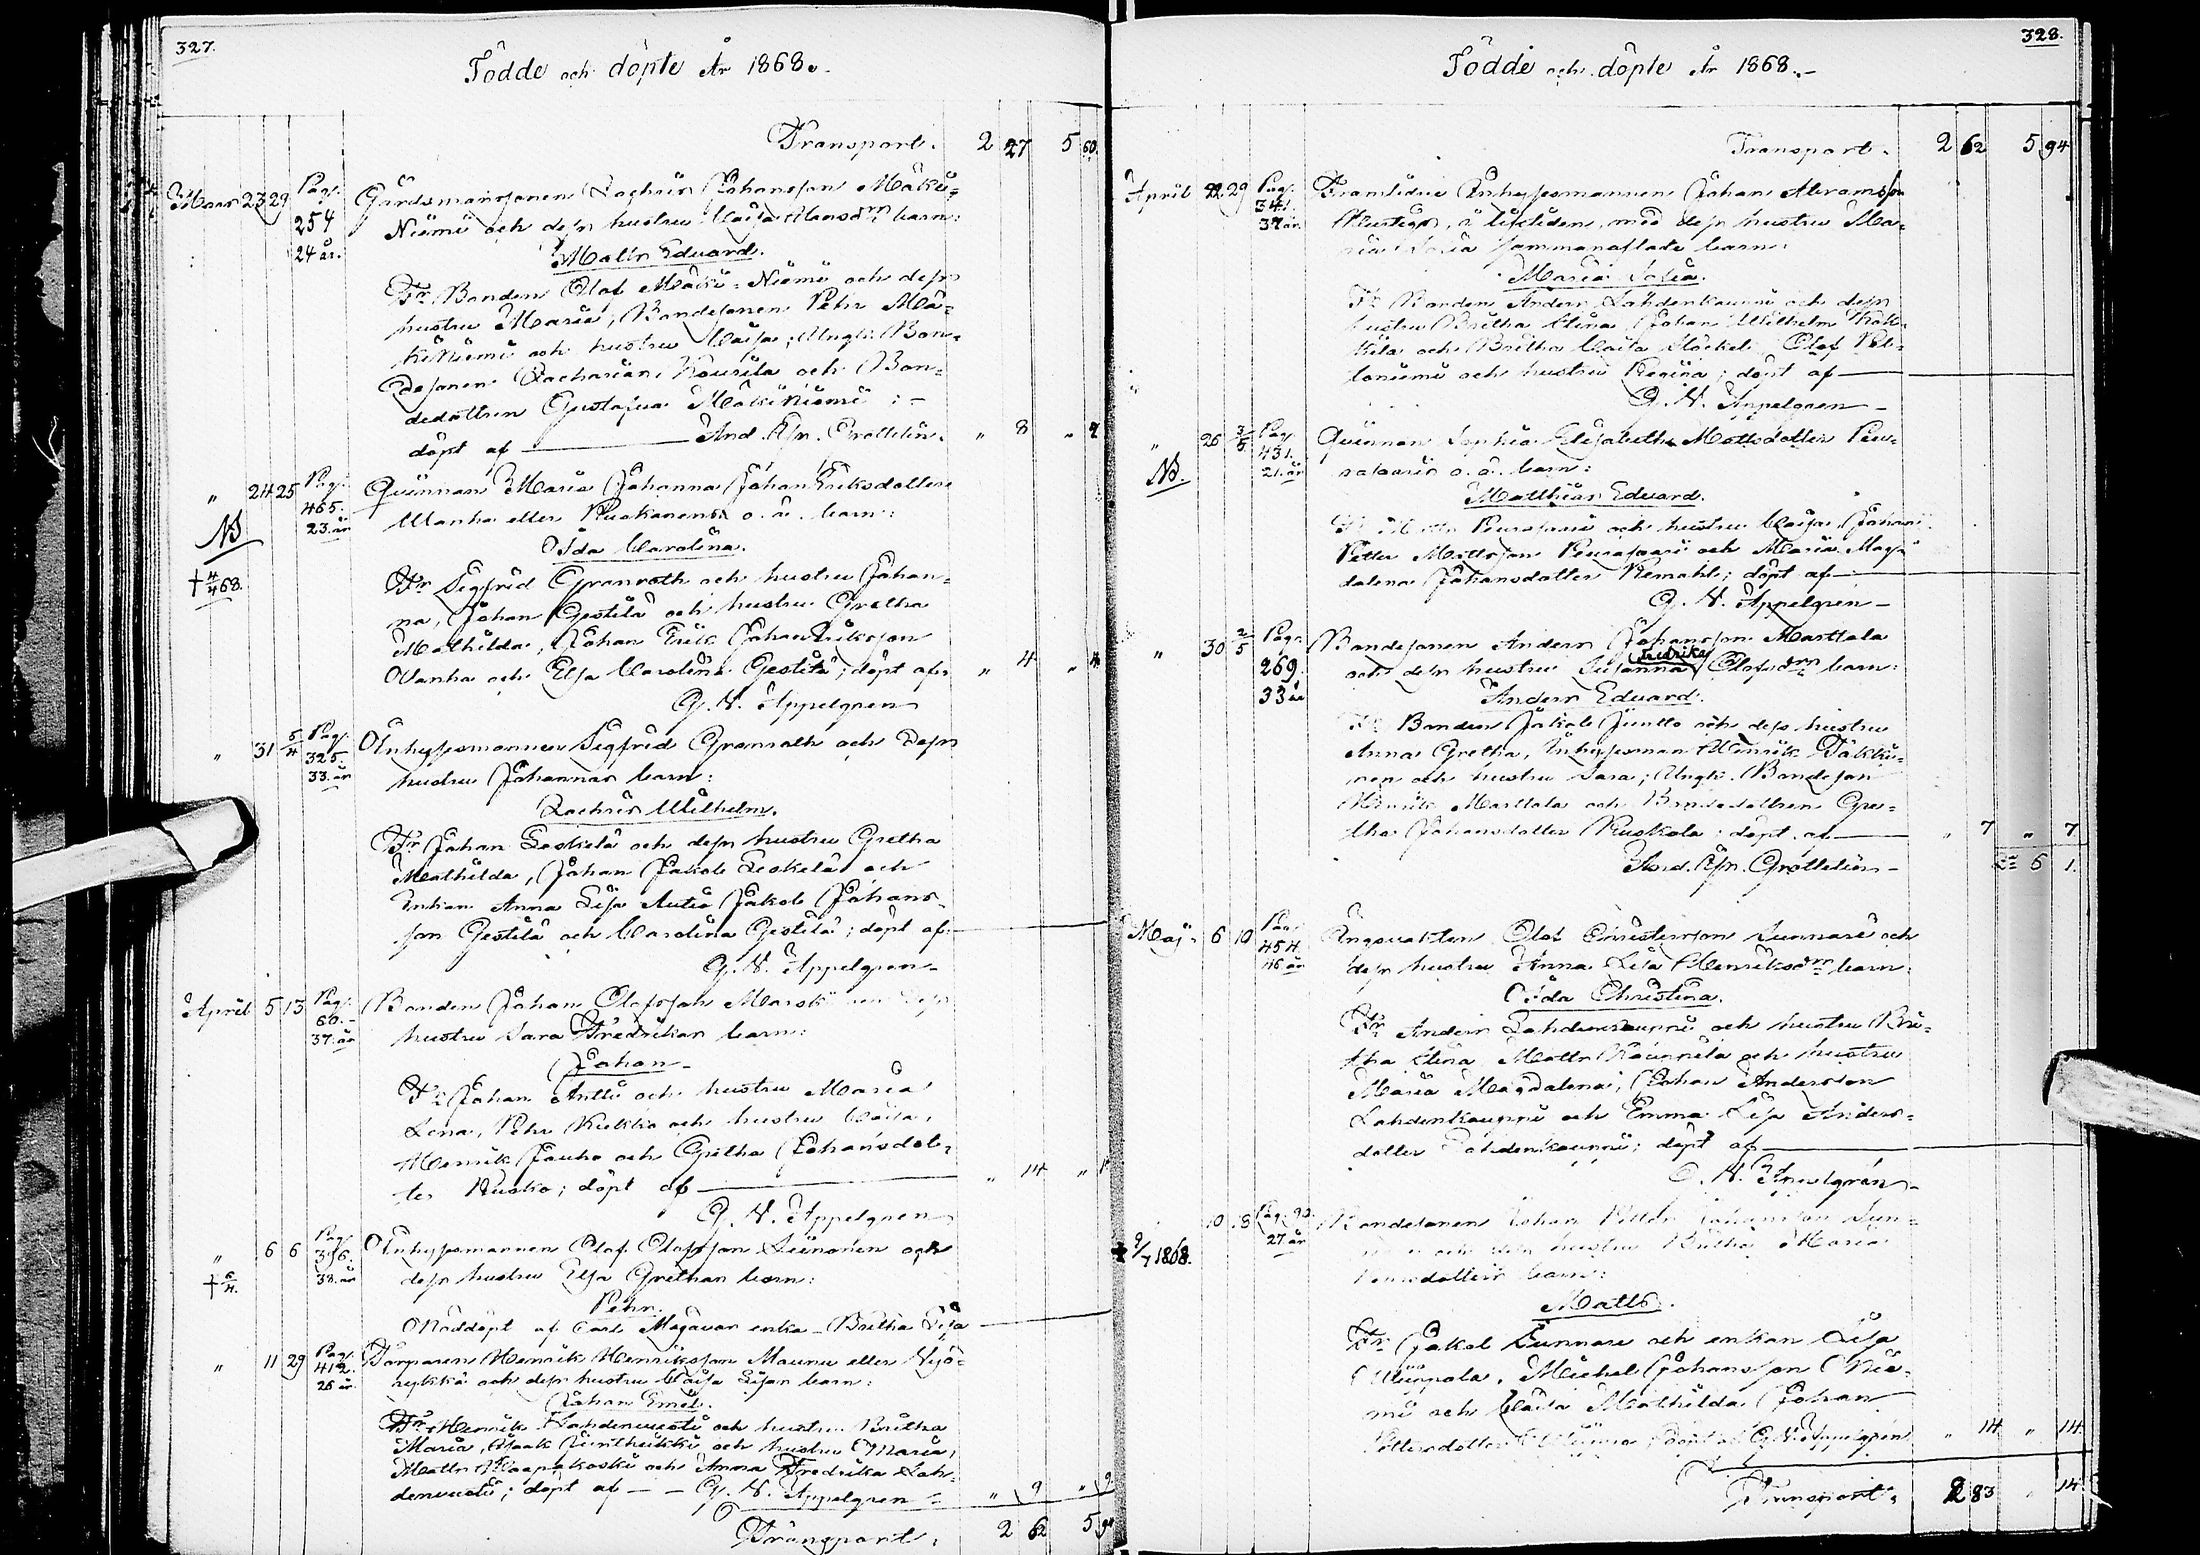 327.
Födde och döpte År 1868.
Transport. 2 27 5 60.
Mars 23 29 Pag. 254 24 år. Gårdsmanssonen Zachris Johansson Mäki=
Niemi och dess hustru Caisa Mansdrs barn:
Matts Eduard.
Fr. Bonden Olof Mäki=Niemi och dess
hustru Maria, Bondesonen Pehr Mä=
kiNiemi och hustru Caisa; Ungk. Bon=
desonen Zacharias Kourila och Bon=
dedottren Gustafva Mäkiniemi; –
döpt af And. Joh. Gröttelin. " 8 "
" 24 25 Pag. 465. 23. år Qvinnan Maria Johanna Johan Eriksdotter
NB Wanha eller Ruokanens o. ä. barn:
Ida Carolina.
† 4/4 68. Fr. Sigfrid Granroth och hustru Johan=
na, Johan Gestilä och hustru Gretha
Mathilda, Johan Erik Johan Eriksson
Wanha och Elsa Carolina Gestilä; döpt af " 4 " 4
G. N. Appelgren
" 31 5/4 Pag. 325. 33. år Inhysesmannen Sigfrid Granroth och dess
hustru Johannas barn:
Zachris Wilhelm.
Fr. Johan Leskelä och dess hustru Gretha
Mathilda, Johan Jakob Leskelä och
Enkan Anna Lisa Autio Jakob Johans=
son Gestilä och Carolina Gestilä; döpt af
G. N. Appelgren
April 5 13 Pag. 60. 37. år Bonden Johan Olofsson dess
hustru Sara Fredrikas barn:
Johan
Fr. Johan Anttu och hustru Maria
Lena, Pehr och hustru Caisa,
Henrik Jauho och Gretha Johansdot=
ter Rusko; döpt af " 14 "
G. N. Appelgren
" 6 6 Pag. 38. år Inhysesmannen Olof Olofsson och
† 6/4. dess hustru Elsa Grethas barn:
Pehr.
Nöddöpt af enka Britha Lisa
" 11 29 Pag. 412. 26 år. Torparen Henrik Henriksson Maunu eller
och dess hustru Caisa Lisas barn:
Johan Emil.
Fr. Henrik och hustru Britha
Maria, Isak och hustru Maria,
Matts och Anna Fredrika Lah=
; döpt af – – G. N. Appelgren " 9 " 9
Transport. 2 62 5 94
328.
Födde och döpte År 1868. –
Transport. 2 62 5 94
April 22 29 Pag. 341. 37 år. Framlidne Inhysesmannen Johan Abramsson
i lifstiden, med dess hustru Ma=
ria Sofia sammanaflade barn:
Maria Sofia.
Fr. Bonden Anders Lahdenkauppi och dess
hustru Britha Stina, Johan Wilhelm
och Britha Caisa Olof
och hustru Regina; döpt af
G. N. Appelgren –
" 26 3/5 Pag. 431. 21. år Qvinnan Sophia Elisabeth Mattsdotter Peu=
NB. rasaaris o. ä. barn:
Matthias Eduard.
Fr. Matts Peurasaari och hustru Caisa, Johan
Petter Mattsson Peurasaari och Maria Mag=
dalena Johansdotter; döpt af
G. N. Appelgren –
" 30 2/5 Pag. 269. 33 år Bondesonen Anders Johansson Marttala
och dess hustru Susanna Fredrika Olofsdrs barn:
Anders Eduard.
Fr. Bonden Jakob Juntto och dess hustru
Anna Gretha, Inhysesman Henrik Täkki=
nen och hustru Sara; Ungk. Bondeson
Henrik Marttala och Bondedottren Gre=
tha Johansdotter Ruokola; döpt af " 7 " 7
And. Joh. Gröttelin – 6 1.
Maj 6 10 Pag. 454. 46 år Olof Christersson Lunnari och
dess hustru Anna Lisa Henriksdrs barn:
Ida Christina.
Fr. Anders Lahdenkauppi och hustru Bri=
tha Stina, Matts och hustru
Maria Magdalena, Johan Andersson
Lahdenkauppi och Emma Lisa Anders=
dotter Lahdenkauppi; döpt af
G. N. Appelgren –
10 18 Pag. 90. 27 år Bondesonen Johan Petter Johansson
† 9/7 1868. och dess hustru Britha Maria
barn:
Matts.
Fr. Jakob Lunnari och enkan Lisa
, Michel Johansson Nie=
mi och Caisa Mathilda Johan
Pettersdotter; döpt af G. N. Appelgren " 14 " 14
Transport. 2 83 " 14